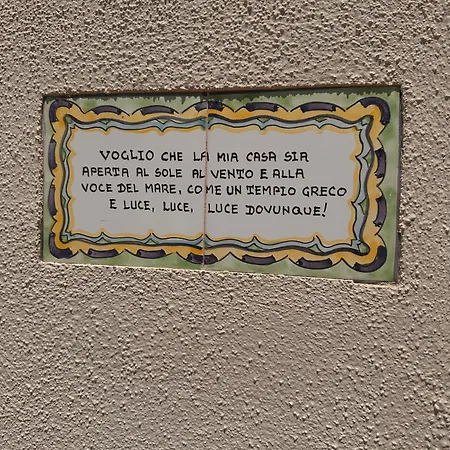 VOGLIO CHE LA MIA CASA SIA
APERTA AL SOLE AL VENTO E ALLA
VOCE DEL MARE, COME UN TEMPIO GRECO
E LUCE, LUCE, LUCE DOVUNQUE!